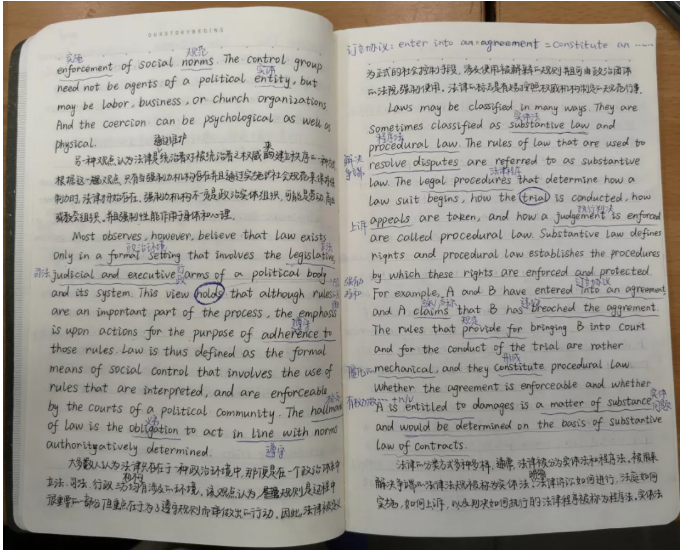 实施 规范
enforcement of social norms. The control group
实体
need not be agents of a political entity, but
may be labor, business, or church organizations
And the coercion can be psychological as well as
physical.
另一种观点认为法律是统治者对被统治者
根据这一观点,只有当强制力机构
制力时,法律才开始存在。强制力机构不一定是政治实体组织,可能是劳动、商业
或教会组织,并且强制性能作用于身体和心理。
Most observes, however, believe that law exists
政治环境
only in a formal setting that involves the legislative,
司法
judicial and executive arms of a political body
and its system. This view holds that although rules
are an important part of the process, the emphasis
遵守
is upon actions for the purpose of adherence to
those rules. Law is thus defined as the formal
means of social control that involves the use of
rules that are interpreted, and are enforceable
by the courts of a political community. The hallmark
义务
of law is the obligation to act in line with norms
遵守
authoritatively determined.
大多数人认为法律只存在于一种政治环境中,那便是在一个政治体系中
立法、司法、行政机构均有涉及的环境。该观点认为规则是这程中
很重要一部分但重点在于为了遵守规则而使做出的行动。因此,法律被定义
订立协议: enter into an agreement = constitute an ……
为正式的社会控制手段,涉及使用被解释的规则并且可由政治团体
的法院强制使用。法律的标志是有义务按照权威机构制定的规范行事。
Laws may be classified in many ways. They are
实体法
sometimes classified as substantive law and
程序法
procedural law. The rules of law that are used to
解决争端
resolve disputes are referred to as substantive
法律程序
law. The legal procedures that determine how a
law suit begins, how the trial is conducted, how
上诉 执行判决
appeals are taken, and how a judgement is enforced
are called procedural law. Substantive law defines
rights and procedural law establishes the procedures
by which these rights are enforced and protected.
订立协议
For example, A and B have entered into an agreement
and A claims that B has breached the aggrement.
规定
The rules that provide for bringing B into court
and for the conduct of the trial are rather
构成
mechanical, and they constitute procedural law.
Whether the agreement is enforceable and whether
有权力做…… +n/v 实体问题
A is entitled to damages is a matter of substance
and would be determined on the basis of substantive
law of contracts.
法律的分类方式多种多样,通常,法律被分为实体法和程序法。被用来
解决争端的法律法规被称为实体法。法律诉讼如何进行,法庭如何
实施,如何上诉,以及判决如何执行的法律程序被称为程序法。实体法